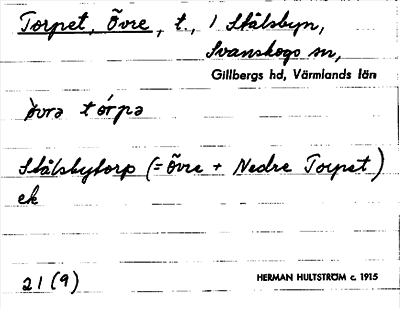 Torpet, Övre, t., / Stålsbyn,
Svanskogs sn,
Gillbergs hd, Värmlands län
òvrə tórpə
Stålsbytorp (= Övre + Nedre Torpet)
ek
21 (9)
HERMAN HULTSTRÖM c. 1915